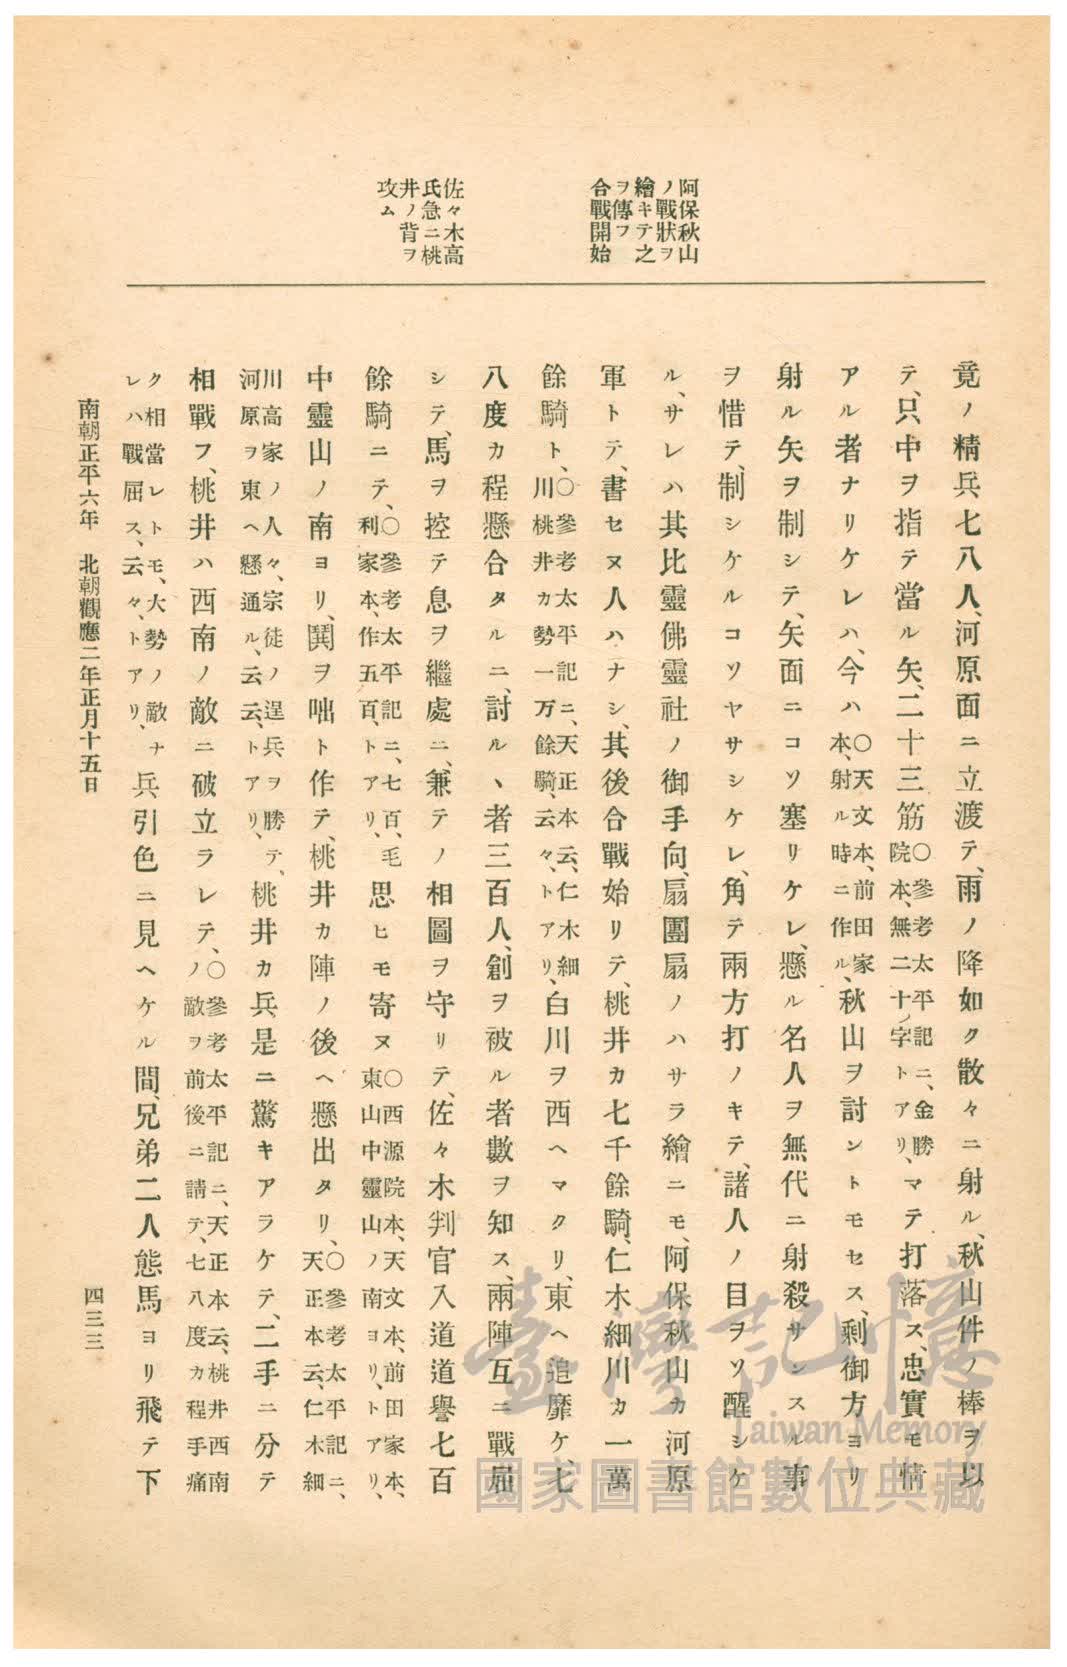 阿保秋山
ノ戰狀ヲ
繪キテ之
ヲ傳フ
合戰開始
佐々木高
氏急ニ桃
井ノ背ヲ
攻ム
竟ノ精兵七八人、河原面ニ立渡テ、雨ノ降如ク散々ニ射ル、秋山件ノ棒ヲ以
テ、只中ヲ指テ當ル矢、二十三筋〇參考太平記ニ、金勝院本、無二十ノ字トアリ、マテ打落ス、忠實モ情
アル者ナリケレハ、今ハ〇天文本、前田家本、射ル時ニ作ル、秋山ヲ討ントモセス、剩御方ヨリ
射ル矢ヲ制シテ、矢面ニコソ塞リケレ、懸ル名人ヲ無代ニ射殺サンスル事
ヲ惜テ、制シケルコソヤサシケレ、角テ兩方打ノキテ、諸人ノ目ヲソ醒シケ
ル、サレハ其比靈佛靈社ノ御手向、扇團扇ノハサラ繪ニモ、阿保秋山カ河原
軍トテ、書セヌ人ハナシ、其後合戰始リテ、桃井カ七千餘騎、仁木細川カ一萬
餘騎ト、〇參考太平記ニ、天正本云、仁木細川桃井カ勢一万餘騎、云々、トアリ、白川ヲ西ヘマクリ、東ヘ追靡ケ、七
八度カ程懸合タルニ、討ルヽ者三百人、創ヲ被ル者數ヲ知ス、兩陣互ニ戰屈
シテ、馬ヲ控テ息ヲ繼處ニ、兼テノ相圖ヲ守リテ、佐々木判官入道道譽七百
餘騎ニテ、〇參考太平記ニ、七百、毛利家本、作五百、トアリ、思ヒモ寄ヌ〇西源院本、天文本、前田家本、東山中靈山ノ南ヨリ、トアリ、
中靈山ノ南ヨリ、鬨ヲ咄ト作テ、桃井カ陣ノ後ヘ懸出タリ、〇參考太平記ニ、天正本云、仁木細
川高家ノ人々、宗徒ノ逞兵ヲ勝テ、河原ヲ東ヘ懸通ル、云云、トアリ、桃井カ兵是ニ驚キアラケテ、二手ニ分テ
相戰フ、桃井ハ西南ノ敵ニ破立ラレテ、〇參考太平記ニ、天正本云、桃井西南ノ敵ヲ前後ニ請テ、七八度カ程手痛
ク相當レトモ、大勢ノ敵ナレハ戰屈ス、云々、トアリ、兵引色ニ見ヘケル間、兄弟二人態馬ヨリ飛テ下
南朝正平六年　北朝觀應二年正月十五日
四三三
臺灣記憶
Taiwan Memory
國家圖書館數位典藏